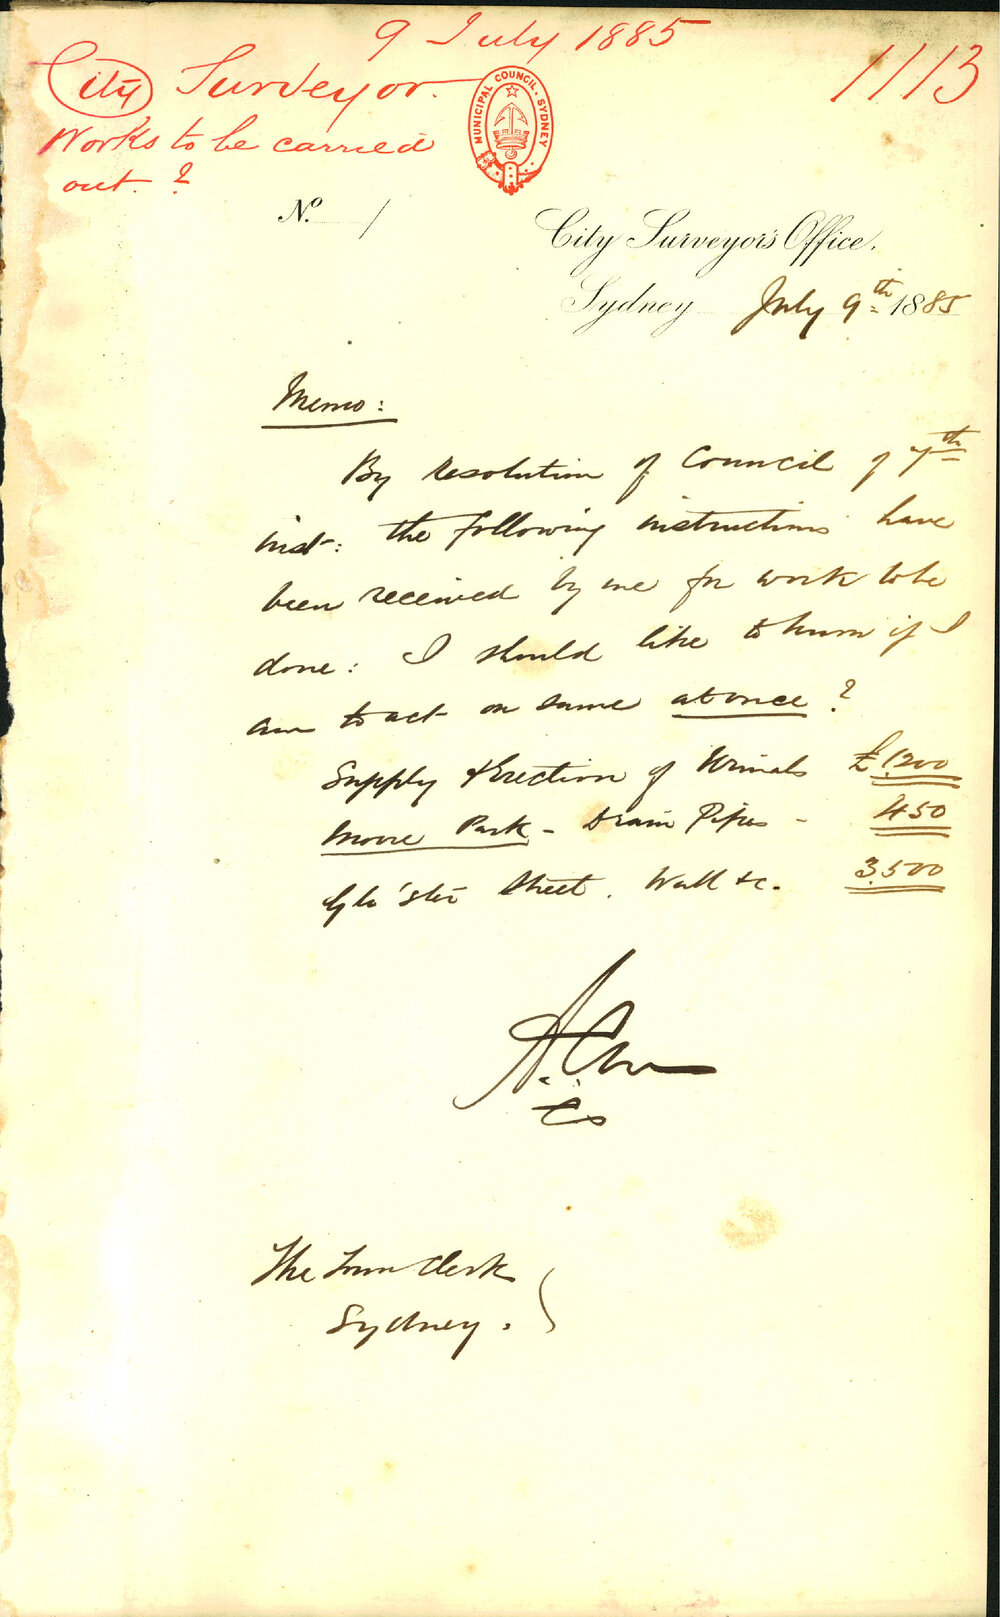 9 July 1885
1113
City Surveyor.
Works to be carried
out. ?
MUNICIPAL COUNCIL. SYDNEY
No. /
City Surveyor's Office.
Sydney July 9th 1885
Memo:
By resolution of Council of 7th
inst: the following instructions have
been received by me for work to be
done: I should like to know if I
am to act on same at once ?
Supply & Erection of Urinals £1200
Moore Park - Drain Pipes - 450
Glo'ster Street. Wall &c. 3.500
A.C.
CS
The Town Clerk
Sydney.